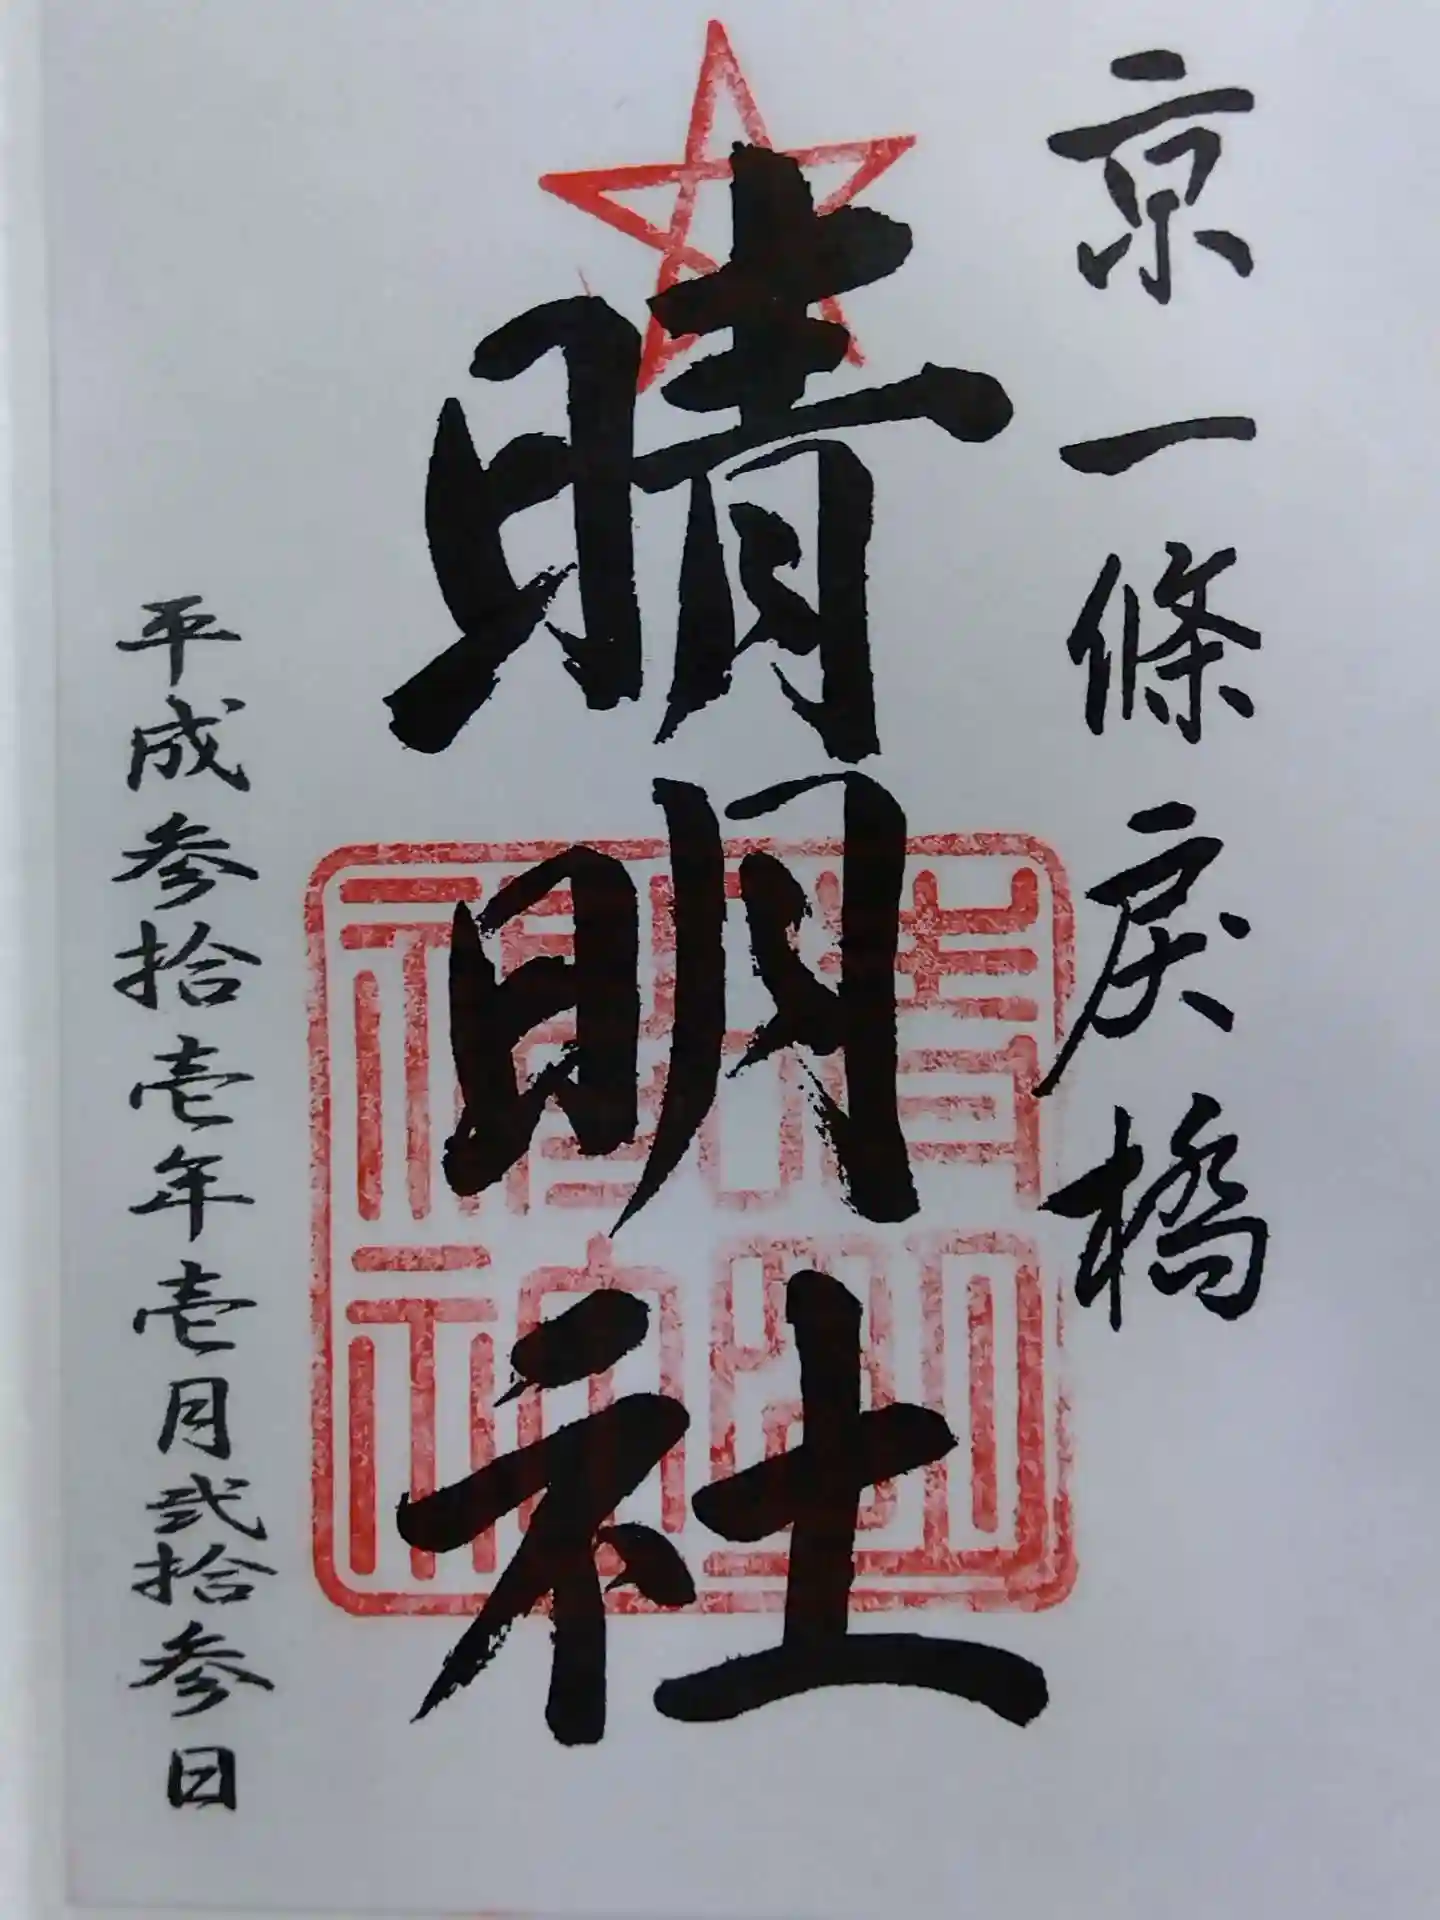 京一條戻橋
晴明社
平成参拾壱年壱月弐拾参日
晴明神社